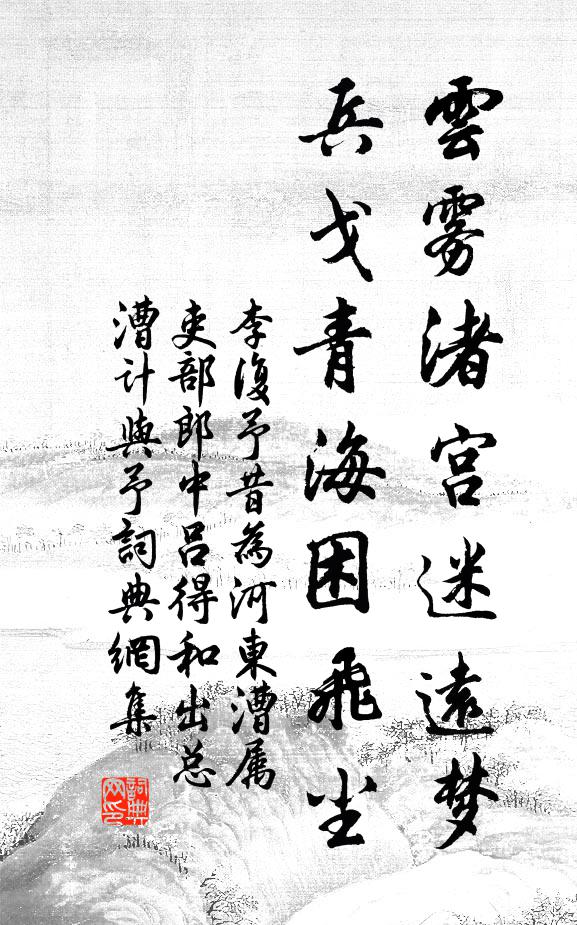 雲雾渚宫迷遠梦
兵戈青海困飛尘
李復予昔為河東漕属
吏部郎中呂得和出总
漕计與予詞典網集
詞典網印